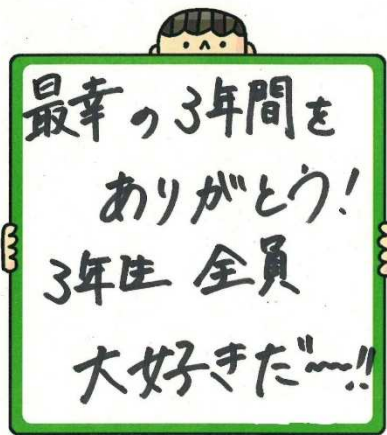 最幸の3年間を
ありがとう!
3年生 全員
大好きだ〜!!